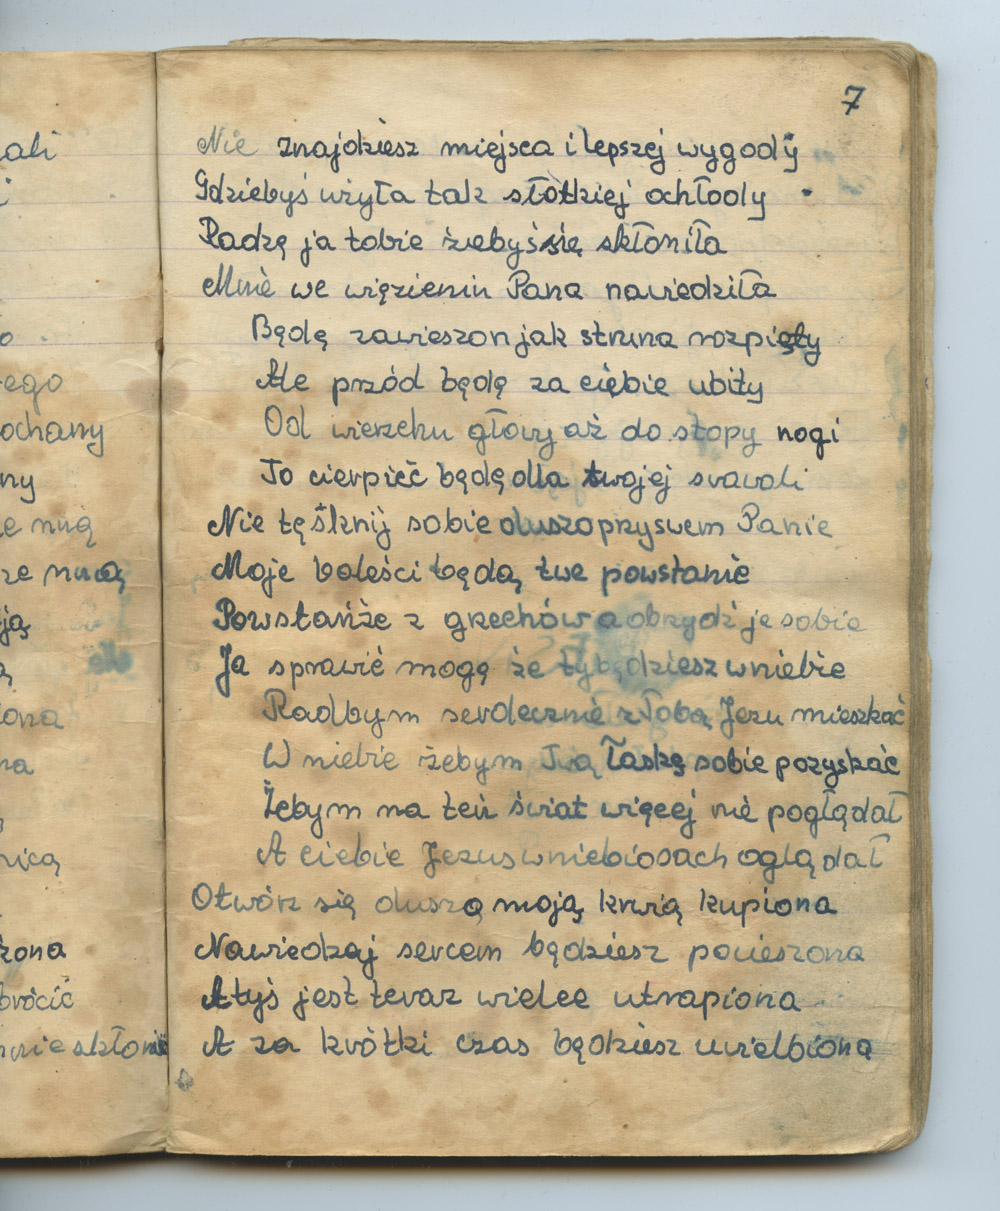 7
Nie znajdziesz miejsca i lepszej wygody
Gdziebyś użyła tak słótkiej ochłody
Radzę ja tobie żebyś się skłoniła
Mnie we więzieniu Pana nawiedziła
Będę zawieszon jak struna rozpięty
Ale przód będę za ciebie ubity
Od wierzchu głowy aż do stopy nogi
To cierpieć będę dla twojej swawoli
Nie tęśknij sobie duszo przyswem Panie
Moje boleści będą twe powstanie
Powstańże z grzechów a obrzydź je sobie
Ja sprawić mogę że ty będziesz w niebie
Radbym serdecznie z Tobą Jezu mieszkać
W niebie żebym Twą łaskę sobie pozyskać
Żebym na ten świat więcej nie poglądał
A ciebie Jezus w niebiosach oglądał
Otwórz się duszo moją krwią kupiona
Nawiedzaj sercem będziesz pocieszona
A tyś jest teraz wielce utrapiona
A za krótki czas będziesz uwielbioną
ali
o
ego
ochany
ny
e mną
ze mną
ją
ona
na
nicą
żona
brócić